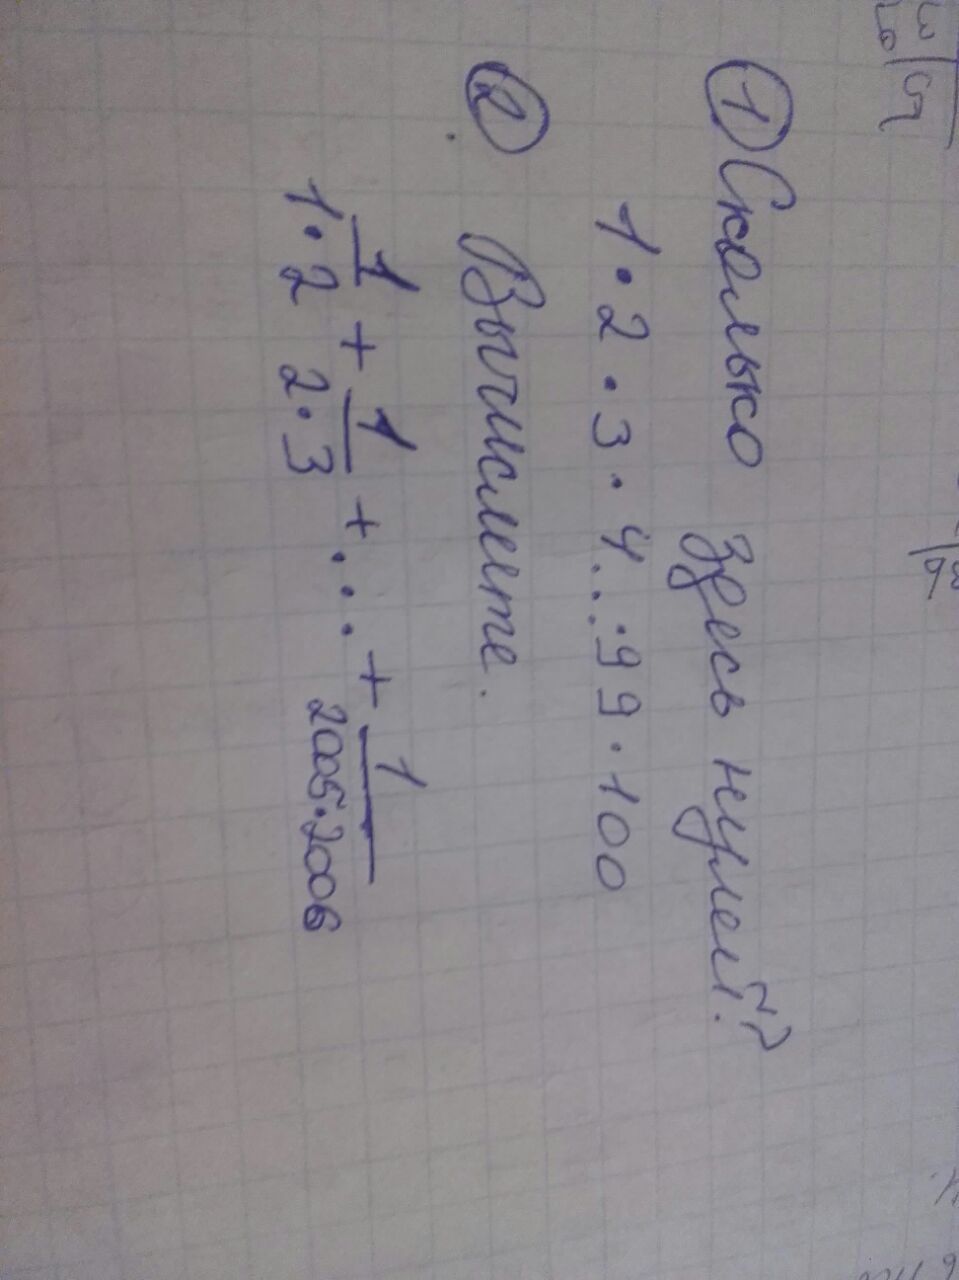 ① Сколько здесь нулей?
1·2·3·4...·99·100
② Вычислите.
1/1·2 + 1/2·3 + ... + 1/2005·2006